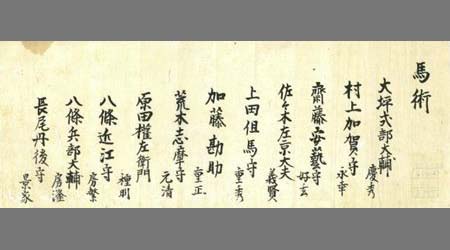 馬術
大坪式部大輔 慶秀
村上加賀守 永幸
齋藤安藝守 好玄
佐々木左京大夫 義賢
上田但馬守 重秀
加藤勘助 重正
荒木志摩守 元清
原田権左衛門 種明
八條近江守 房繁
八條兵部大輔 房隆
長尾丹後守 景家